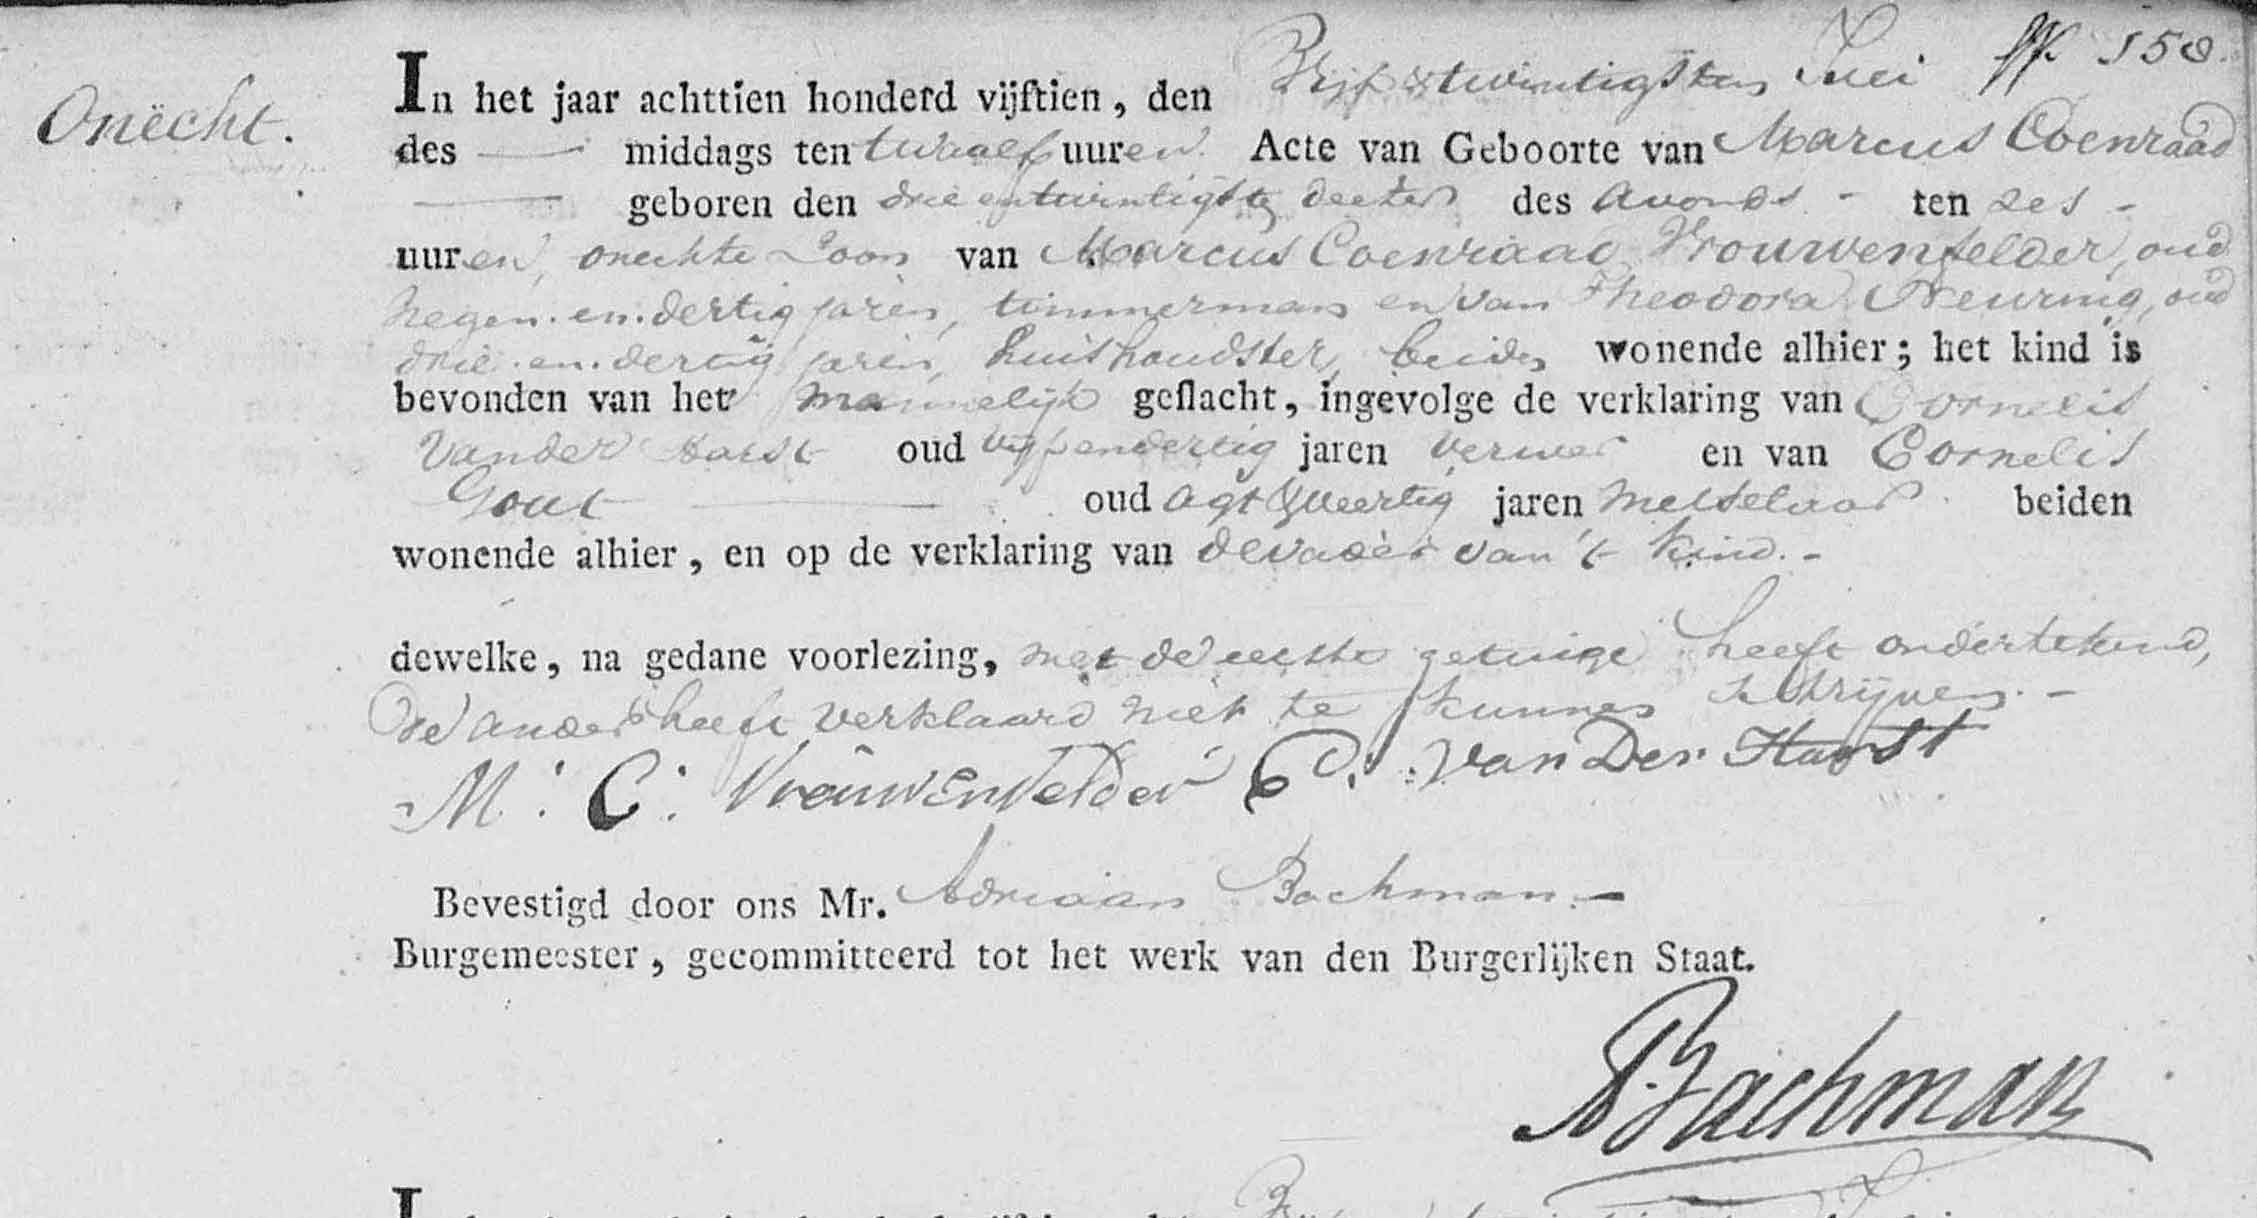 Onëcht.
In het jaar achttien honderd vijftien, den Vijf & twintigsten Mei № 158.
des — middags ten twaalf uuren. Acte van Geboorte van Marcus Coenraad
— geboren den drie entwintigste deeser des avonds - ten zes -
uuren, onechte Zoon van Marcus Coenraad Vrouwenfelder, oud
negen.en.dertig jaren, timmerman en van Theodora Neuring, oud
drie.en.dertig jaren, huishoudster, beiden wonende alhier; het kind is
bevonden van het mannelijk geslacht, ingevolge de verklaring van Cornelis
vander Harst oud vijfendertig jaren verwer en van Cornelis
Gout — oud agt & veertig jaren metselaar beiden
wonende alhier, en op de verklaring van de vader van 't kind. -
dewelke, na gedane voorlezing, met de eerste getuige heeft ondertekend,
de ander heeft verklaard niet te kunnen schrijven. -
M: C: Vrouwenvelder C. van Der Harst
Bevestigd door ons Mr. Adriaan Bachman. -
Burgemeester, gecommitteerd tot het werk van den Burgerlijken Staat.
ABachman